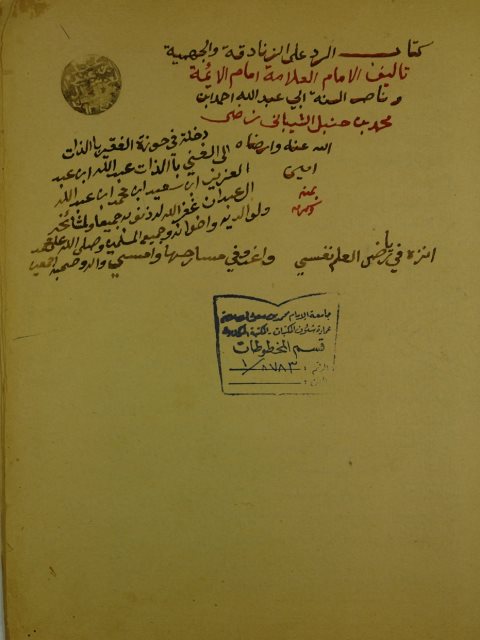 كتاب الرد على الزنادقة والجهمية
تاليف الامام العلامة امام الائمة
وناصر السنة ابي عبد الله احمد بن
محمد بن حنبل الشيباني رضى
الله عنه وارضاه
امين
دخلة في حوزة الفقير بالذات
الى الغني بالذات عبد الله ابن عبد
العزيز ابن سعيد ابن محمد ابن عبد الله
العبدان غفر الله له ذنوبه جميعا
ولوالديه واخوانه وجميع المسلمين وصلى الله على محمد
واله وصحبه اجمعين
انزه في رياض العلم نفسي واغدو في مسارحها وامسي
جامعة الامام محمد بن سعود
عمادة شئون المكتبات - المكتبة المركزية
قسم المخطوطات
الرقم : ٨٧٨٣/١